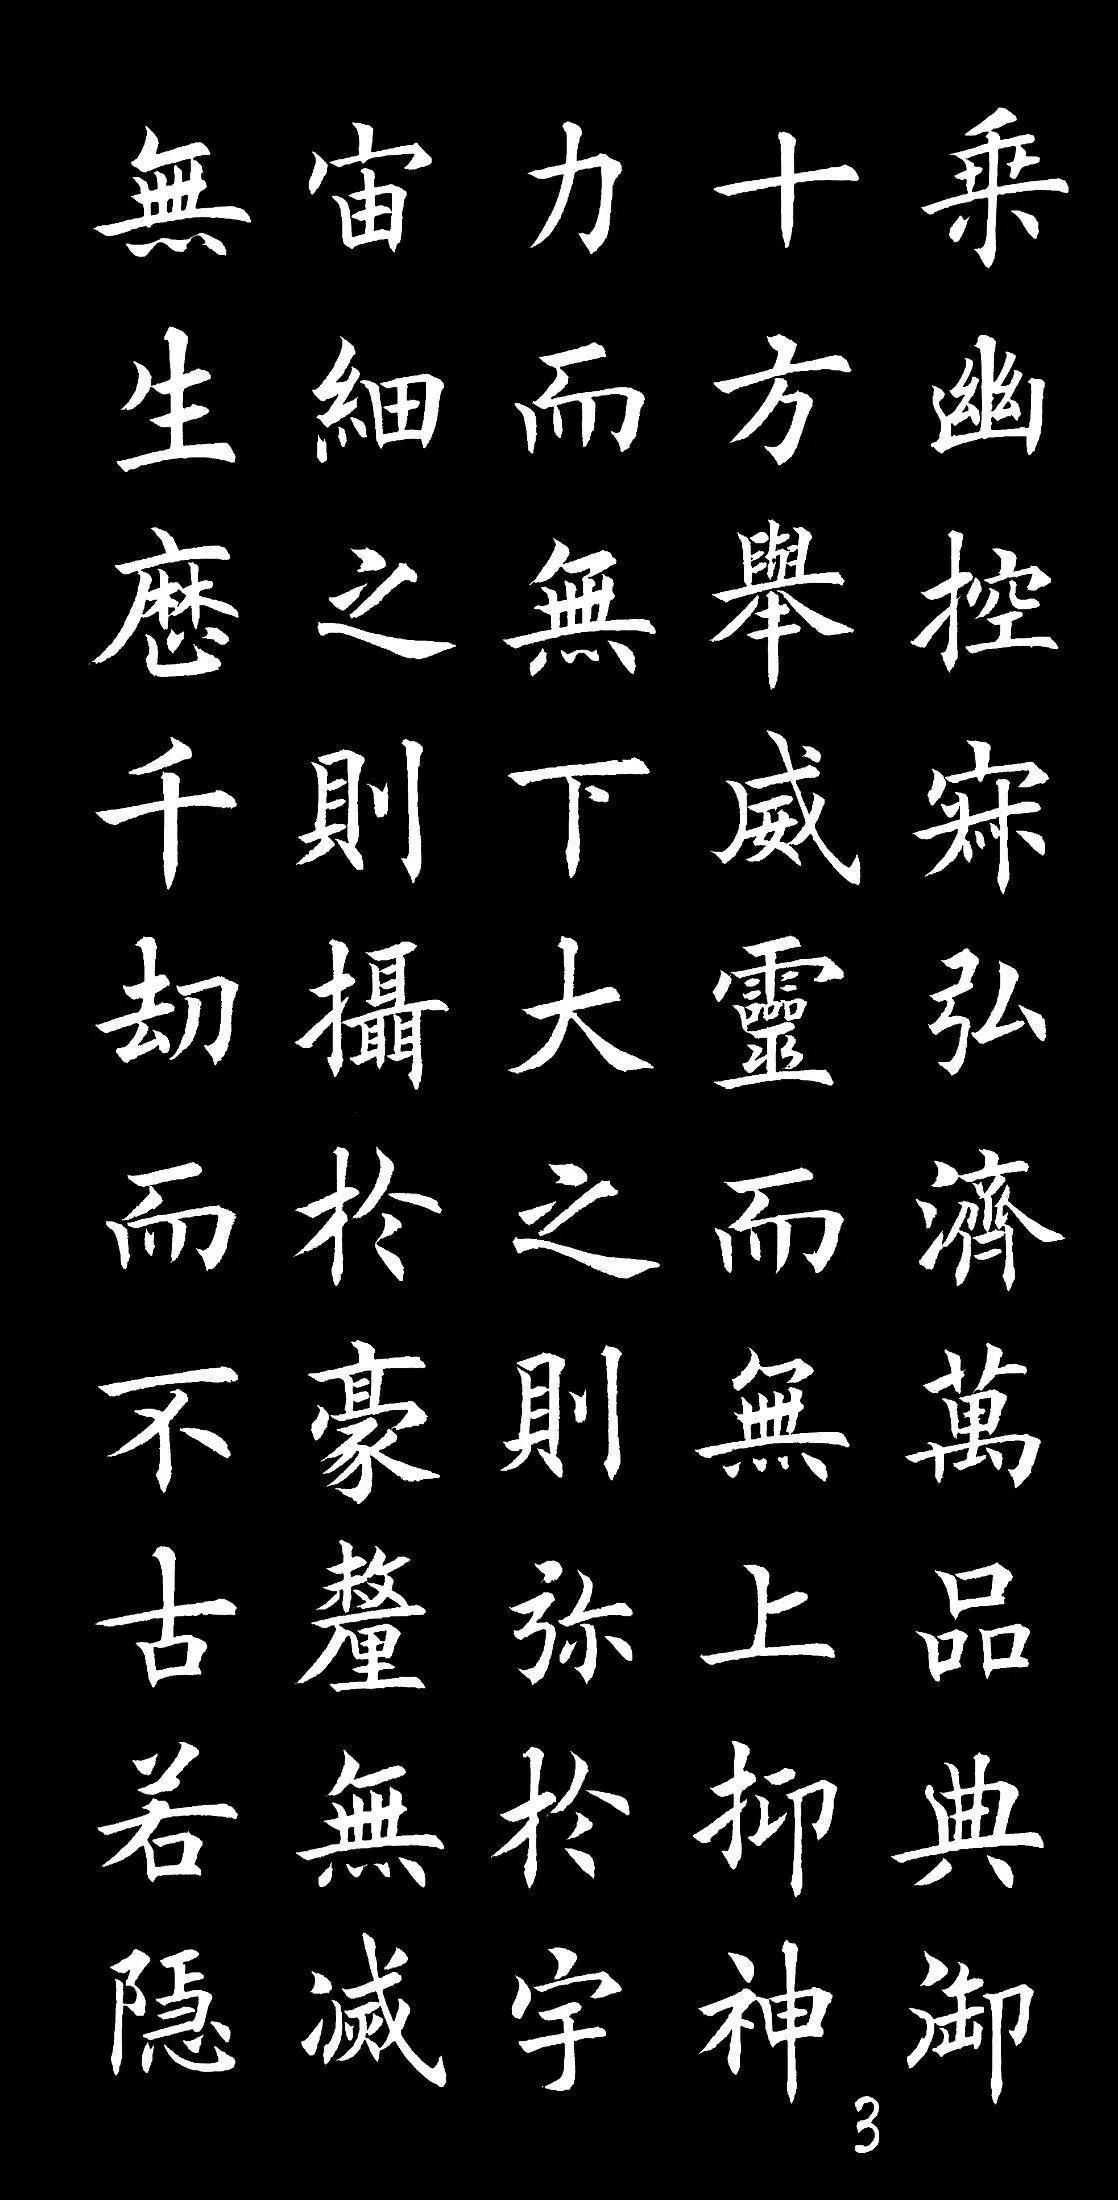 乗幽控寂弘濟萬品典御
十方舉威靈而無上抑神
力而無下大之則弥於宇
宙細之則攝於豪釐無滅
無生歴千劫而不古若隱
3